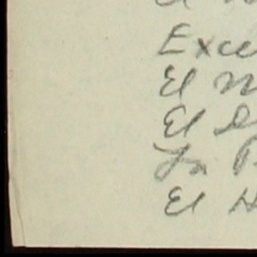 El
Exce
El M
El D
La P
El H